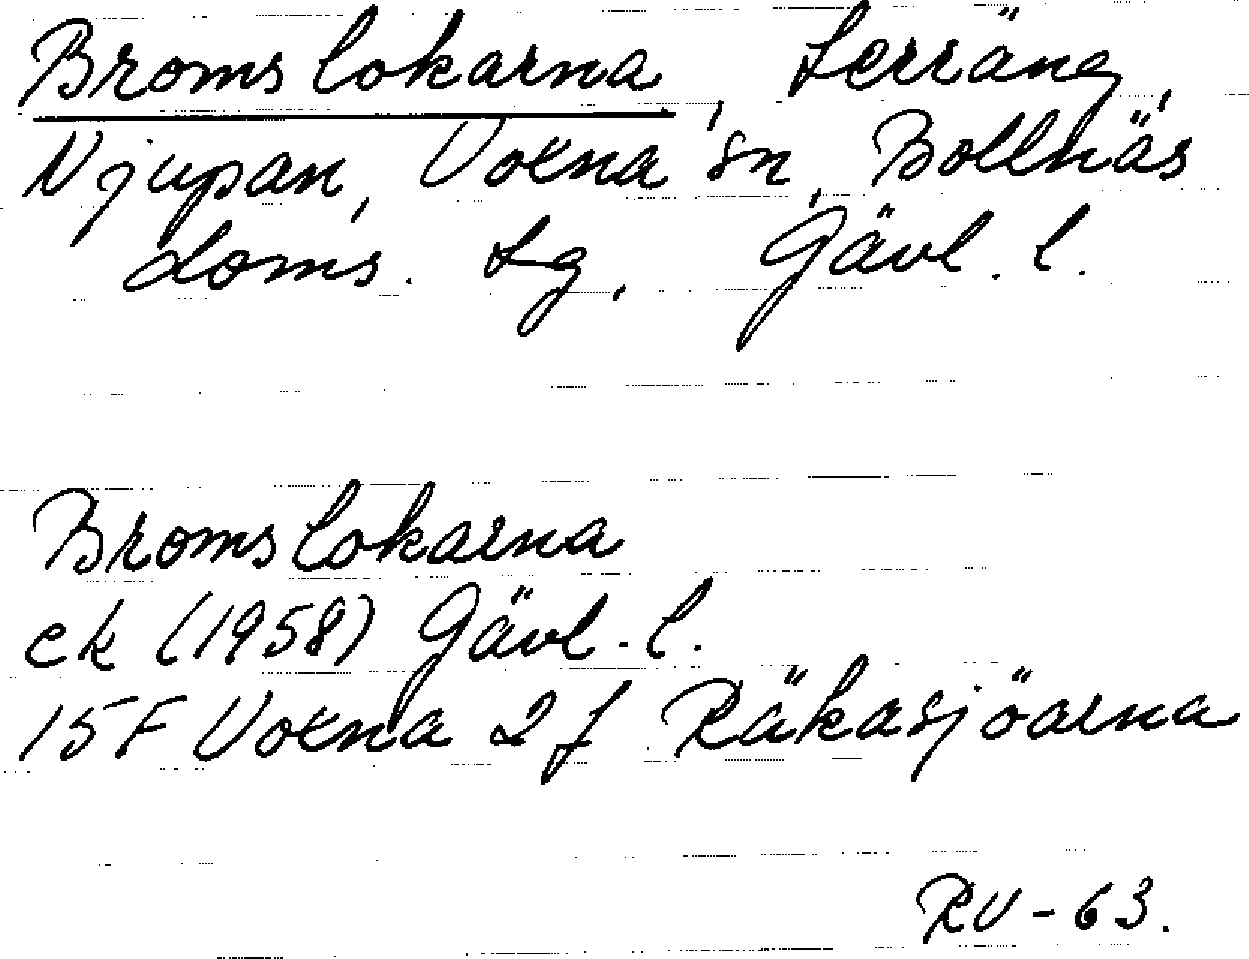 Bromslokarna, terräng,
Njupan, Voxna sn, Bollnäs
doms. tg, Gävl. l.
Bromslokarna
ek (1958) Gävl. l.
15F Voxna 2f Räkasjöarna
RV-63.